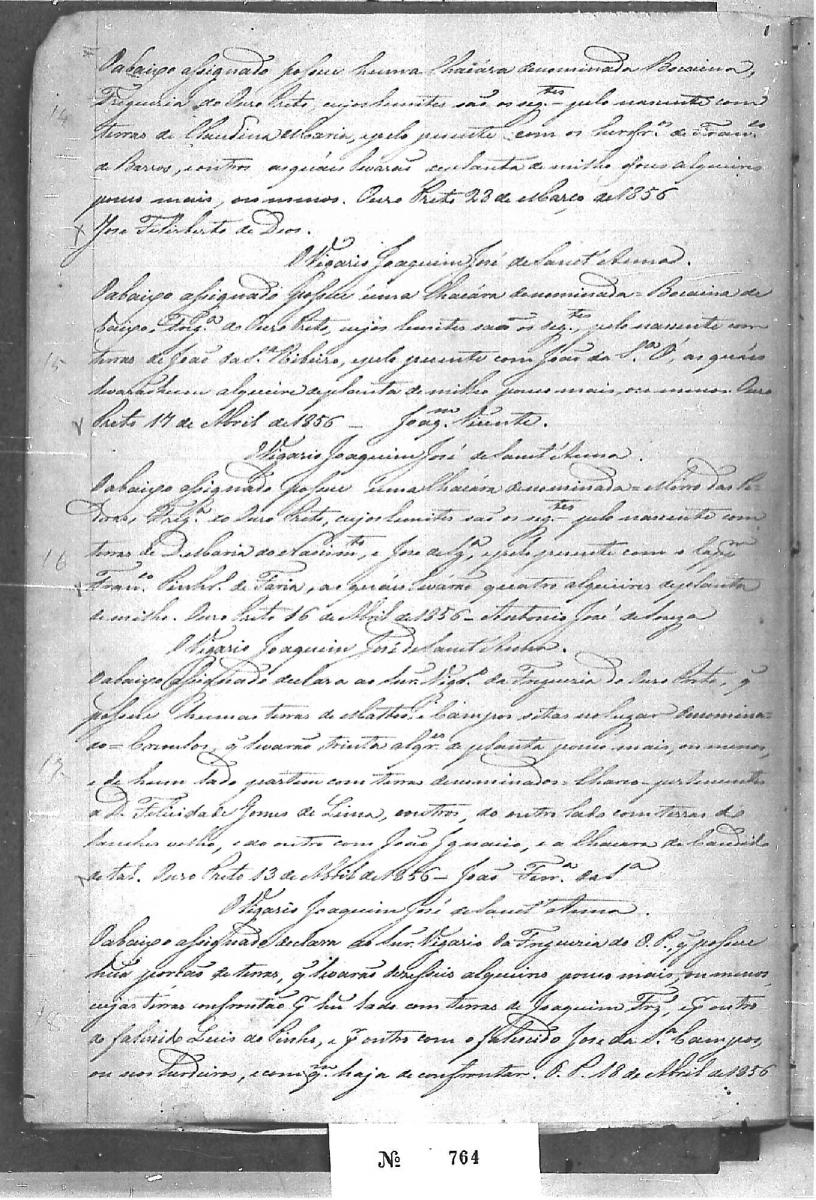 O abaixo assignado possue huma Chacára denominada Bocaina,
14 Freguezia do Ouro Preto, cujos lemites são os seg.tes pelo nascente com
terras de Claudina Maria, e pelo poente com os de Fran.co
de Barros, e outros as quáis levarão de planta de milho alqueires
pouco mais, ou menos. Ouro Preto 23 de Março de 1856
X Jose Felisberto de Deos.
O Vigario Joaquim José de Sanct'Anna.
O abaixo assignado possue uma Chacára denominada = Bocaina de
baixo, Freg.a do Ouro Preto, cujos lemites saõ os seg.tes pelo nascente com
15 terras de João da S.a Ribeiro, e pelo poente com João da S.a Ó, as quáis
levarão hum alqueire de planta de milho pouco mais, ou menos Ouro
Preto 17 de Abril de 1856 — Joaq.m Vicente.
O Vigario Joaquim José de Sanct'Anna.
O abaixo assignado possue uma Chacára denominada = Morro das Pe-
dras, Freg.a do Ouro Preto, cujos lemites são os seg.tes pelo nascente com
16 terras de D. Maria do Nascim.to, e Jose de , e pelo poente com o
Fran.co Pinhr.o de Faria, as quáis levárão quatro alqueires de planta
de milho. Ouro Preto 16 de Abril de 1856 — Antonio José de Souza
O Vigario Joaquim José de Sanct'Anna.
O abaixo assignado declara ao Snr. Vigr.o da Freguezia do Ouro Preto, q
possue humas terras de Mattos, e Campos sitas no lugar denomina-
do = Crioulos, q levarão trinta alqr.es de planta pouco mais, ou menos,
17 e de hum lado partem com terras denominadas = Charco = pertencentes
a D. Felicidade Gomes de Lima, e outros, do outro lado com terras do
Sanches velho, e do outro com João Ignacio, e a Chacara de Candido
de tal. Ouro Preto 13 de Abril de 1856 — João Ferr.a da S.a
O Vigario Joaquim José de Sanct'Anna.
O abaixo assignado declara ao Snr. Vigario da Freguezia do O. P., q possue
hũa porcão de terras, q levarão dezesseis alqueires pouco mais, ou menos,
cujas terras confrontão p hũ lado com terras de Joaquim , e p outro
18 do falecido Luis do Pinho, e p outro com o falescido Jose da S.a Campos,
ou seos herdeiros, e com q.m haja de confrontar. O. P. 18 de Abril de 1856
Nº 764